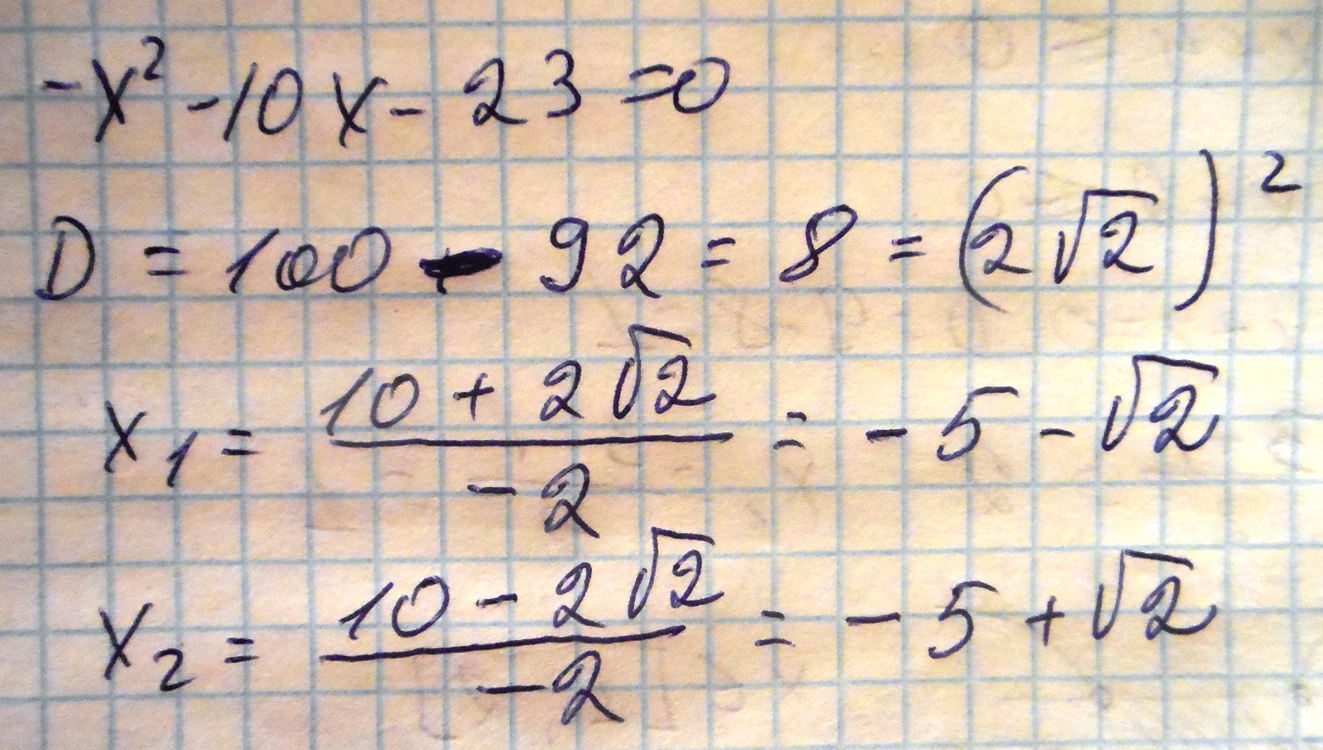 -x² - 10x - 23 = 0
D = 100 - 92 = 8 = (2√2)²
x₁ = (10 + 2√2)/(-2) = -5 - √2
x₂ = (10 - 2√2)/(-2) = -5 + √2